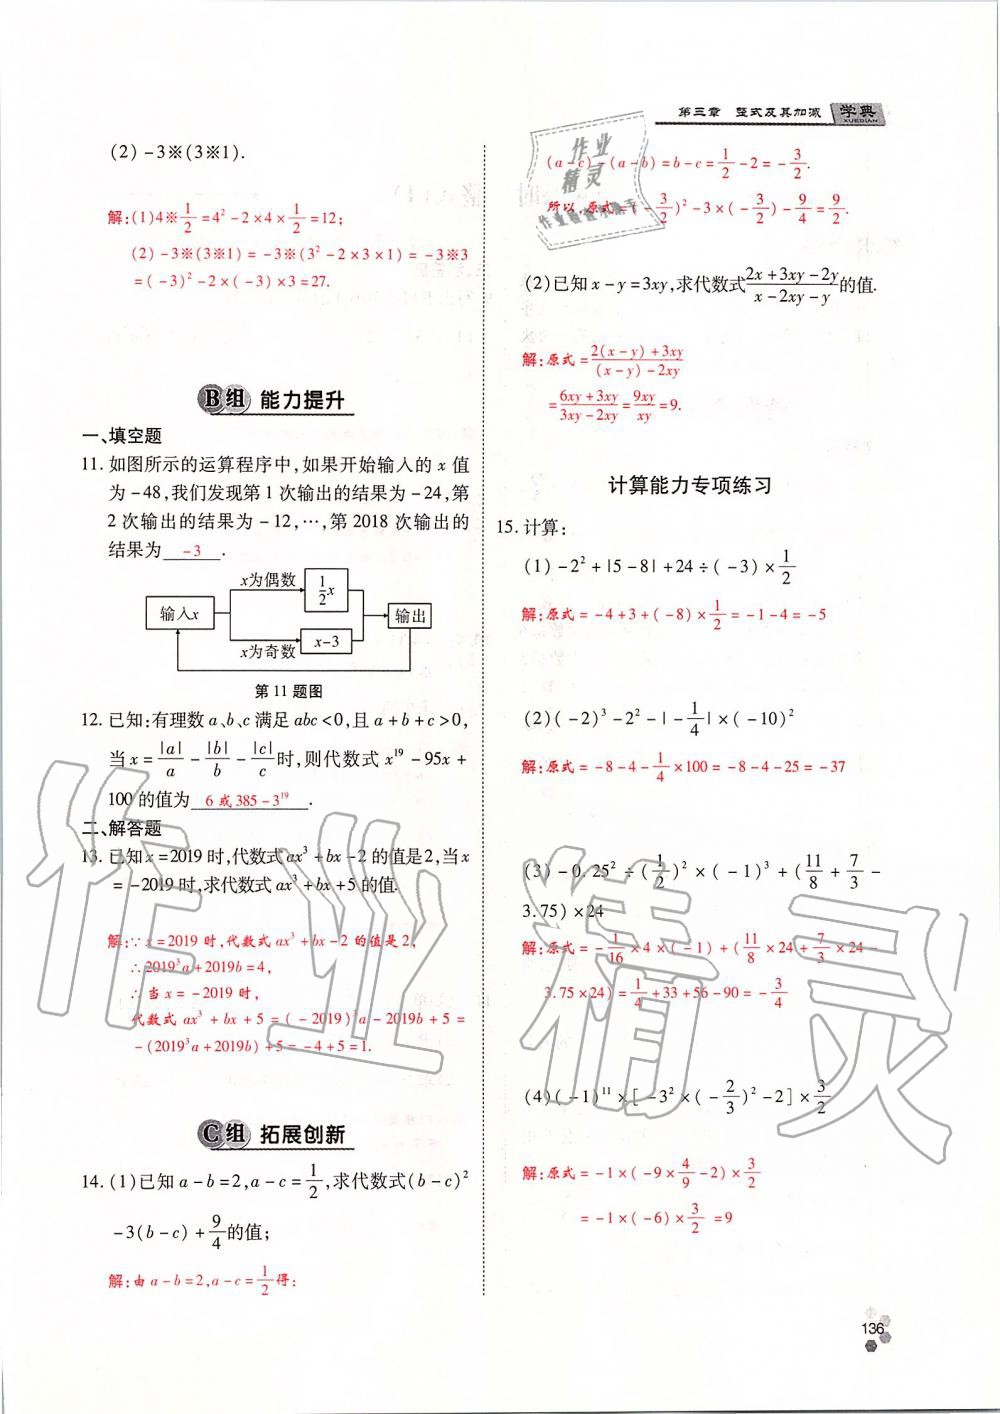 第三章 整式及其加减 学典
XUEDIAN
(2)－3※(3※1).
解:(1)4※1/2=4²－2×4×1/2=12;
(2)－3※(3※1)=－3※(3²－2×3×1)=－3※3
=(－3)²－2×(－3)×3=27.
B组 能力提升
一、填空题
11. 如图所示的运算程序中,如果开始输入的 x 值
为－48,我们发现第 1 次输出的结果为－24,第
2 次输出的结果为－12,…,第 2018 次输出的
结果为 －3 .
x为偶数
1/2x
输入x
输出
x－3
x为奇数
第 11 题图
12. 已知:有理数 a、b、c 满足 abc<0,且 a+b+c>0,
当 x=|a|/a－|b|/b－|c|/c时,则代数式 x¹⁹－95x+
100 的值为 6 或 385－3¹⁹ .
二、解答题
13. 已知x=2019 时,代数式ax³+bx－2 的值是2,当x
=－2019 时,求代数式ax³+bx+5 的值.
解:∵x=2019 时,代数式 ax³+bx－2 的值是 2,
∴2019³a+2019b=4,
∴当 x=－2019 时,
代数式 ax³+bx+5=(－2019)³a－2019b+5=
－(2019³a+2019b)+5=－4+5=1.
C组 拓展创新
14. (1)已知 a－b=2,a－c=1/2,求代数式(b－c)²
－3(b－c)+9/4的值;
解:由 a－b=2,a－c=1/2得:
(a－c)－(a－b)=b－c=1/2－2=－3/2.
所以,原式=(－3/2)²－3×(－3/2)－9/4=9/2.
作业
精灵
(2)已知 x－y=3xy,求代数式(2x+3xy－2y)/(x－2xy－y)的值.
解:原式=(2(x－y)+3xy)/((x－y)－2xy)
=(6xy+3xy)/(3xy－2xy)=9xy/xy=9.
计算能力专项练习
15. 计算:
(1)－2²+|5－8|+24÷(－3)×1/2
解:原式=－4+3+(－8)×1/2=－1－4=－5
(2)(－2)³－2²－|－1/4|×(－10)²
解:原式=－8－4－1/4×100=－8－4－25=－37
(3)－0.25²÷(1/2)²×(－1)³+(11/8+7/3－
3.75)×24
解:原式=－1/16×4×(－1)+(11/8×24+7/3×24－
3.75×24)=1/4+33+56－90=－3/4
(4)(－1)¹¹×[－3²×(－2/3)²－2]×3/2
解:原式=－1×(－9×4/9－2)×3/2
=－1×(－6)×3/2=9
136
作业精灵